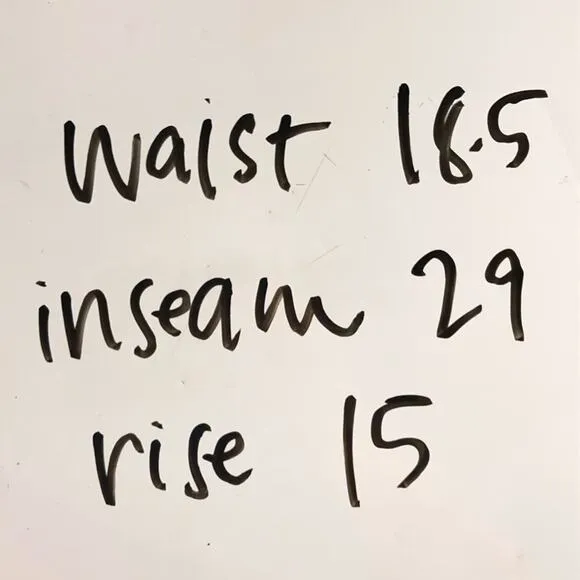 waist 18.5
inseam 29
rise 15